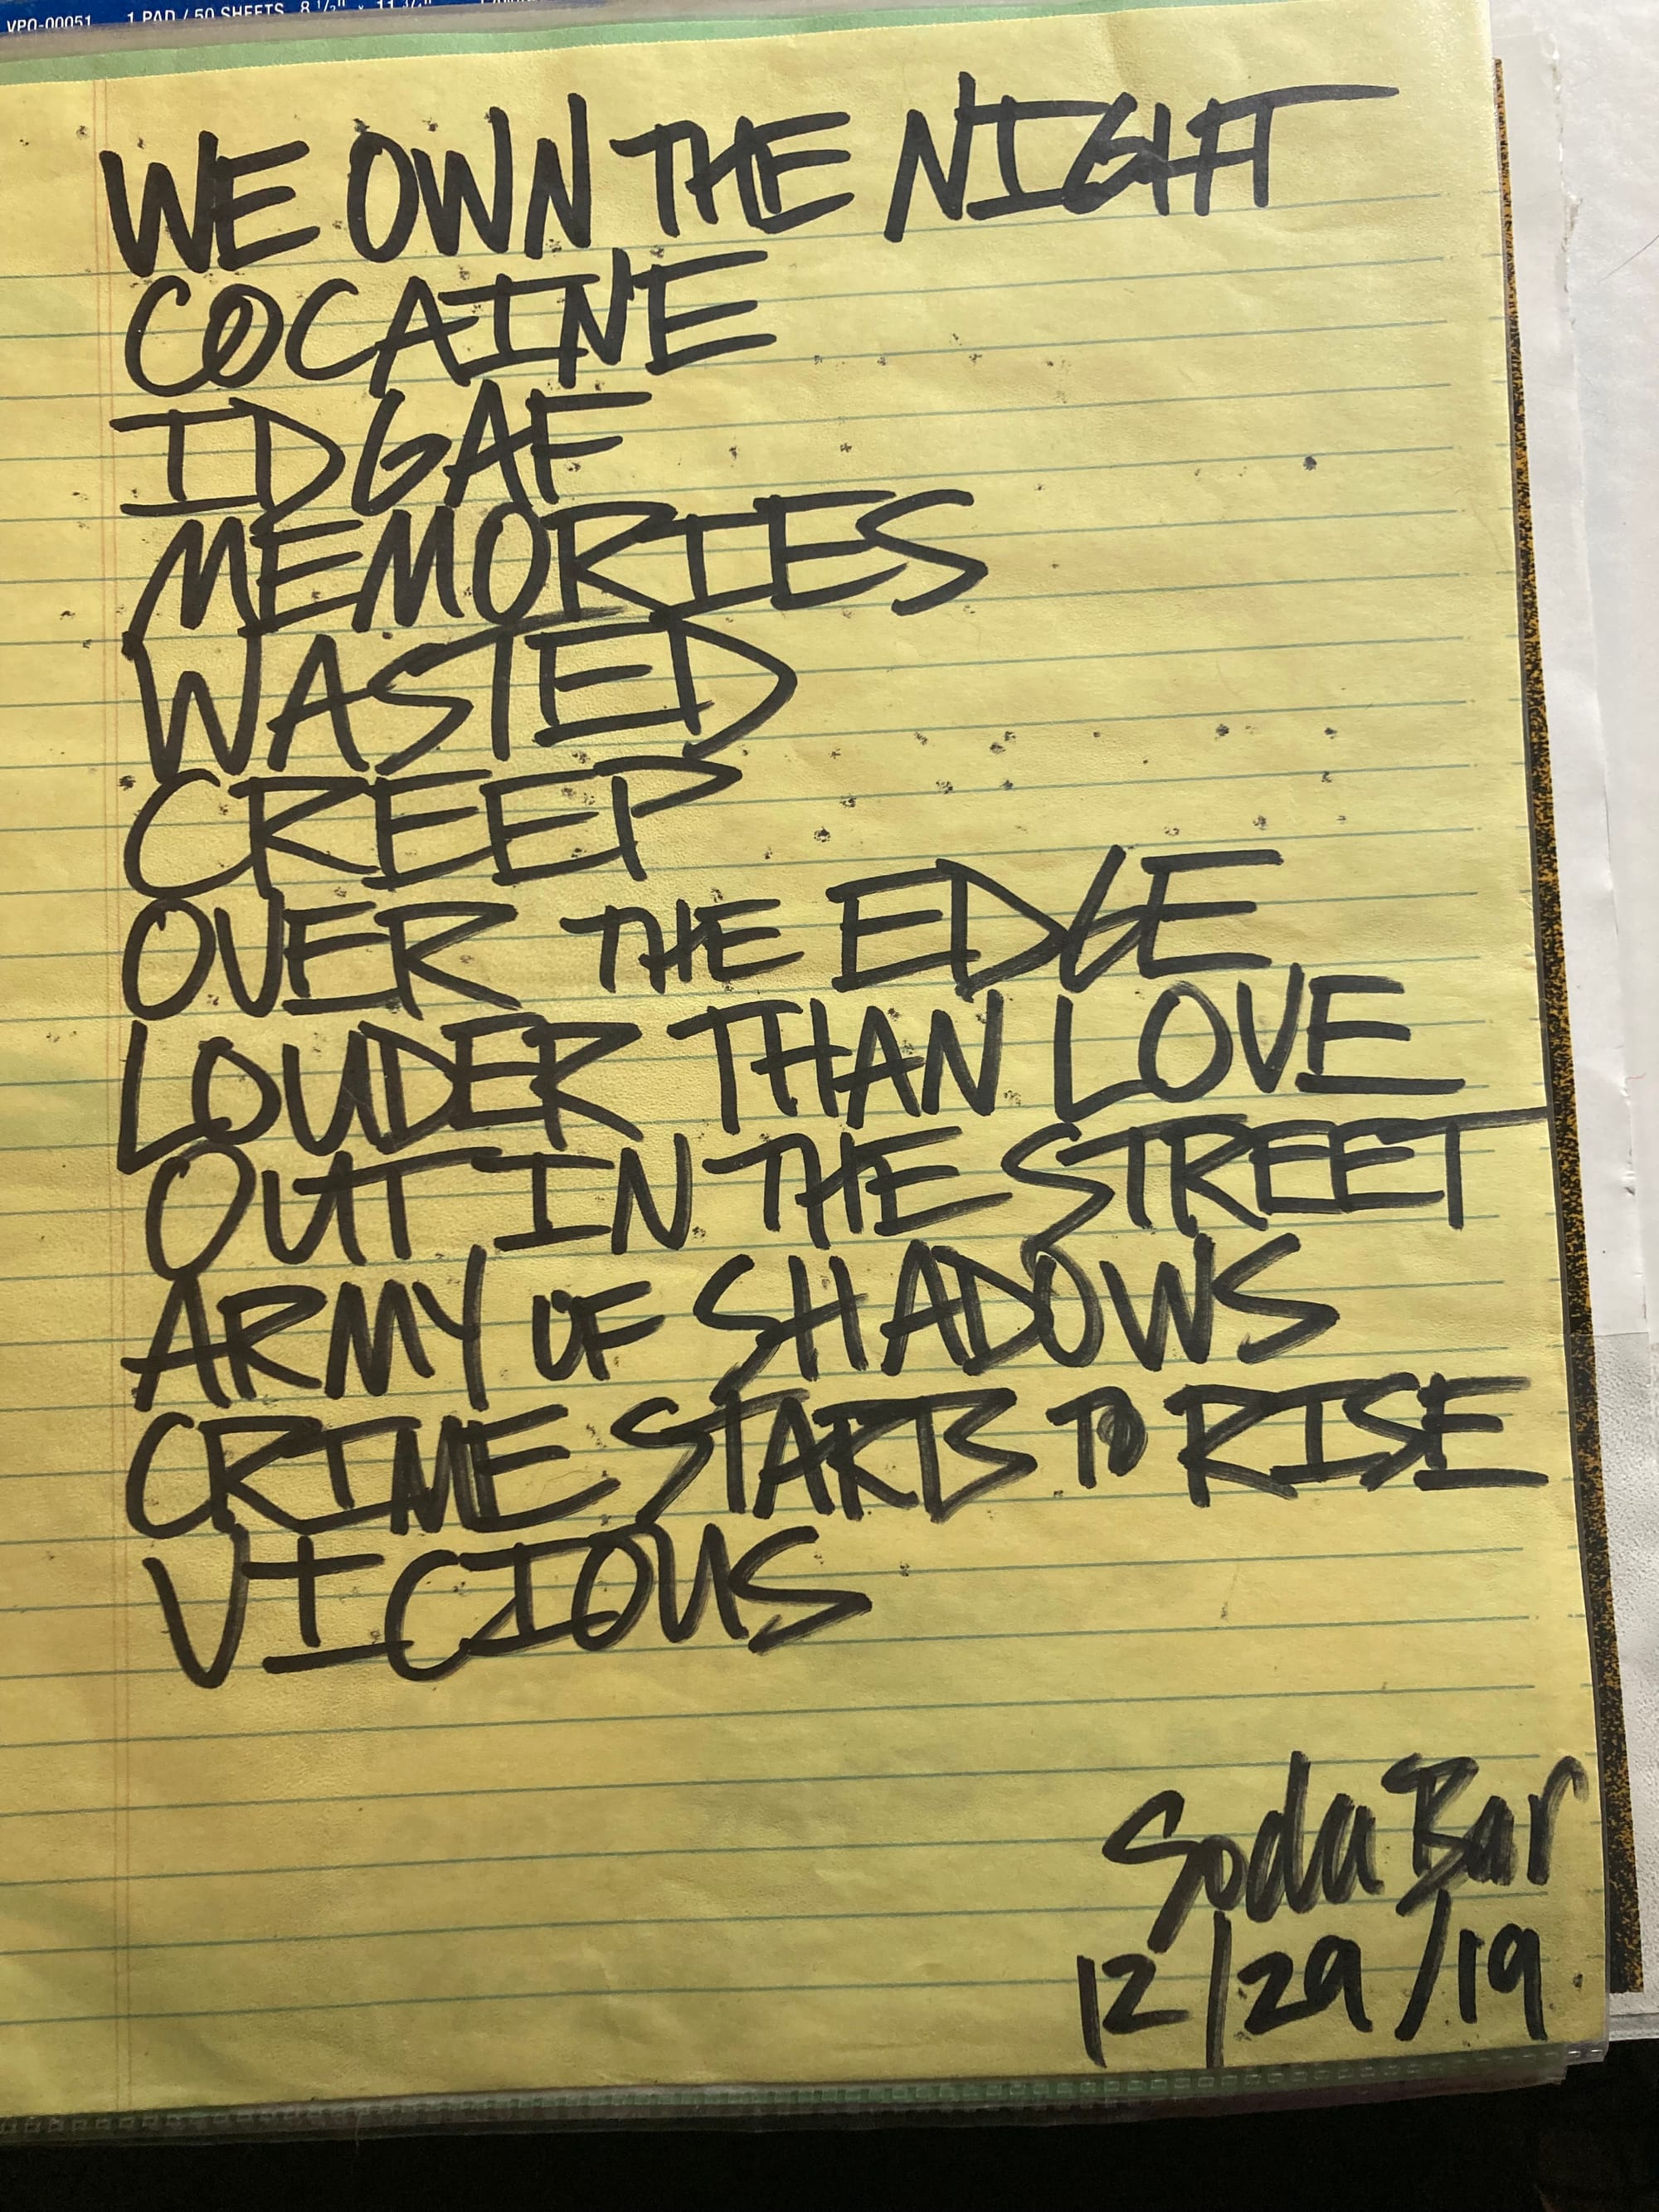 VPO-00051 1 PAD / 50 SHEETS 8 1/2" x 11 3/4"
WE OWN THE NIGHT
COCAINE
IDGAF
MEMORIES
WASTED
CREEP
OVER THE EDGE
LOUDER THAN LOVE
OUT IN THE STREET
ARMY OF SHADOWS
CRIME STARTS TO RISE
VICIOUS
Soda Bar
12/29/19